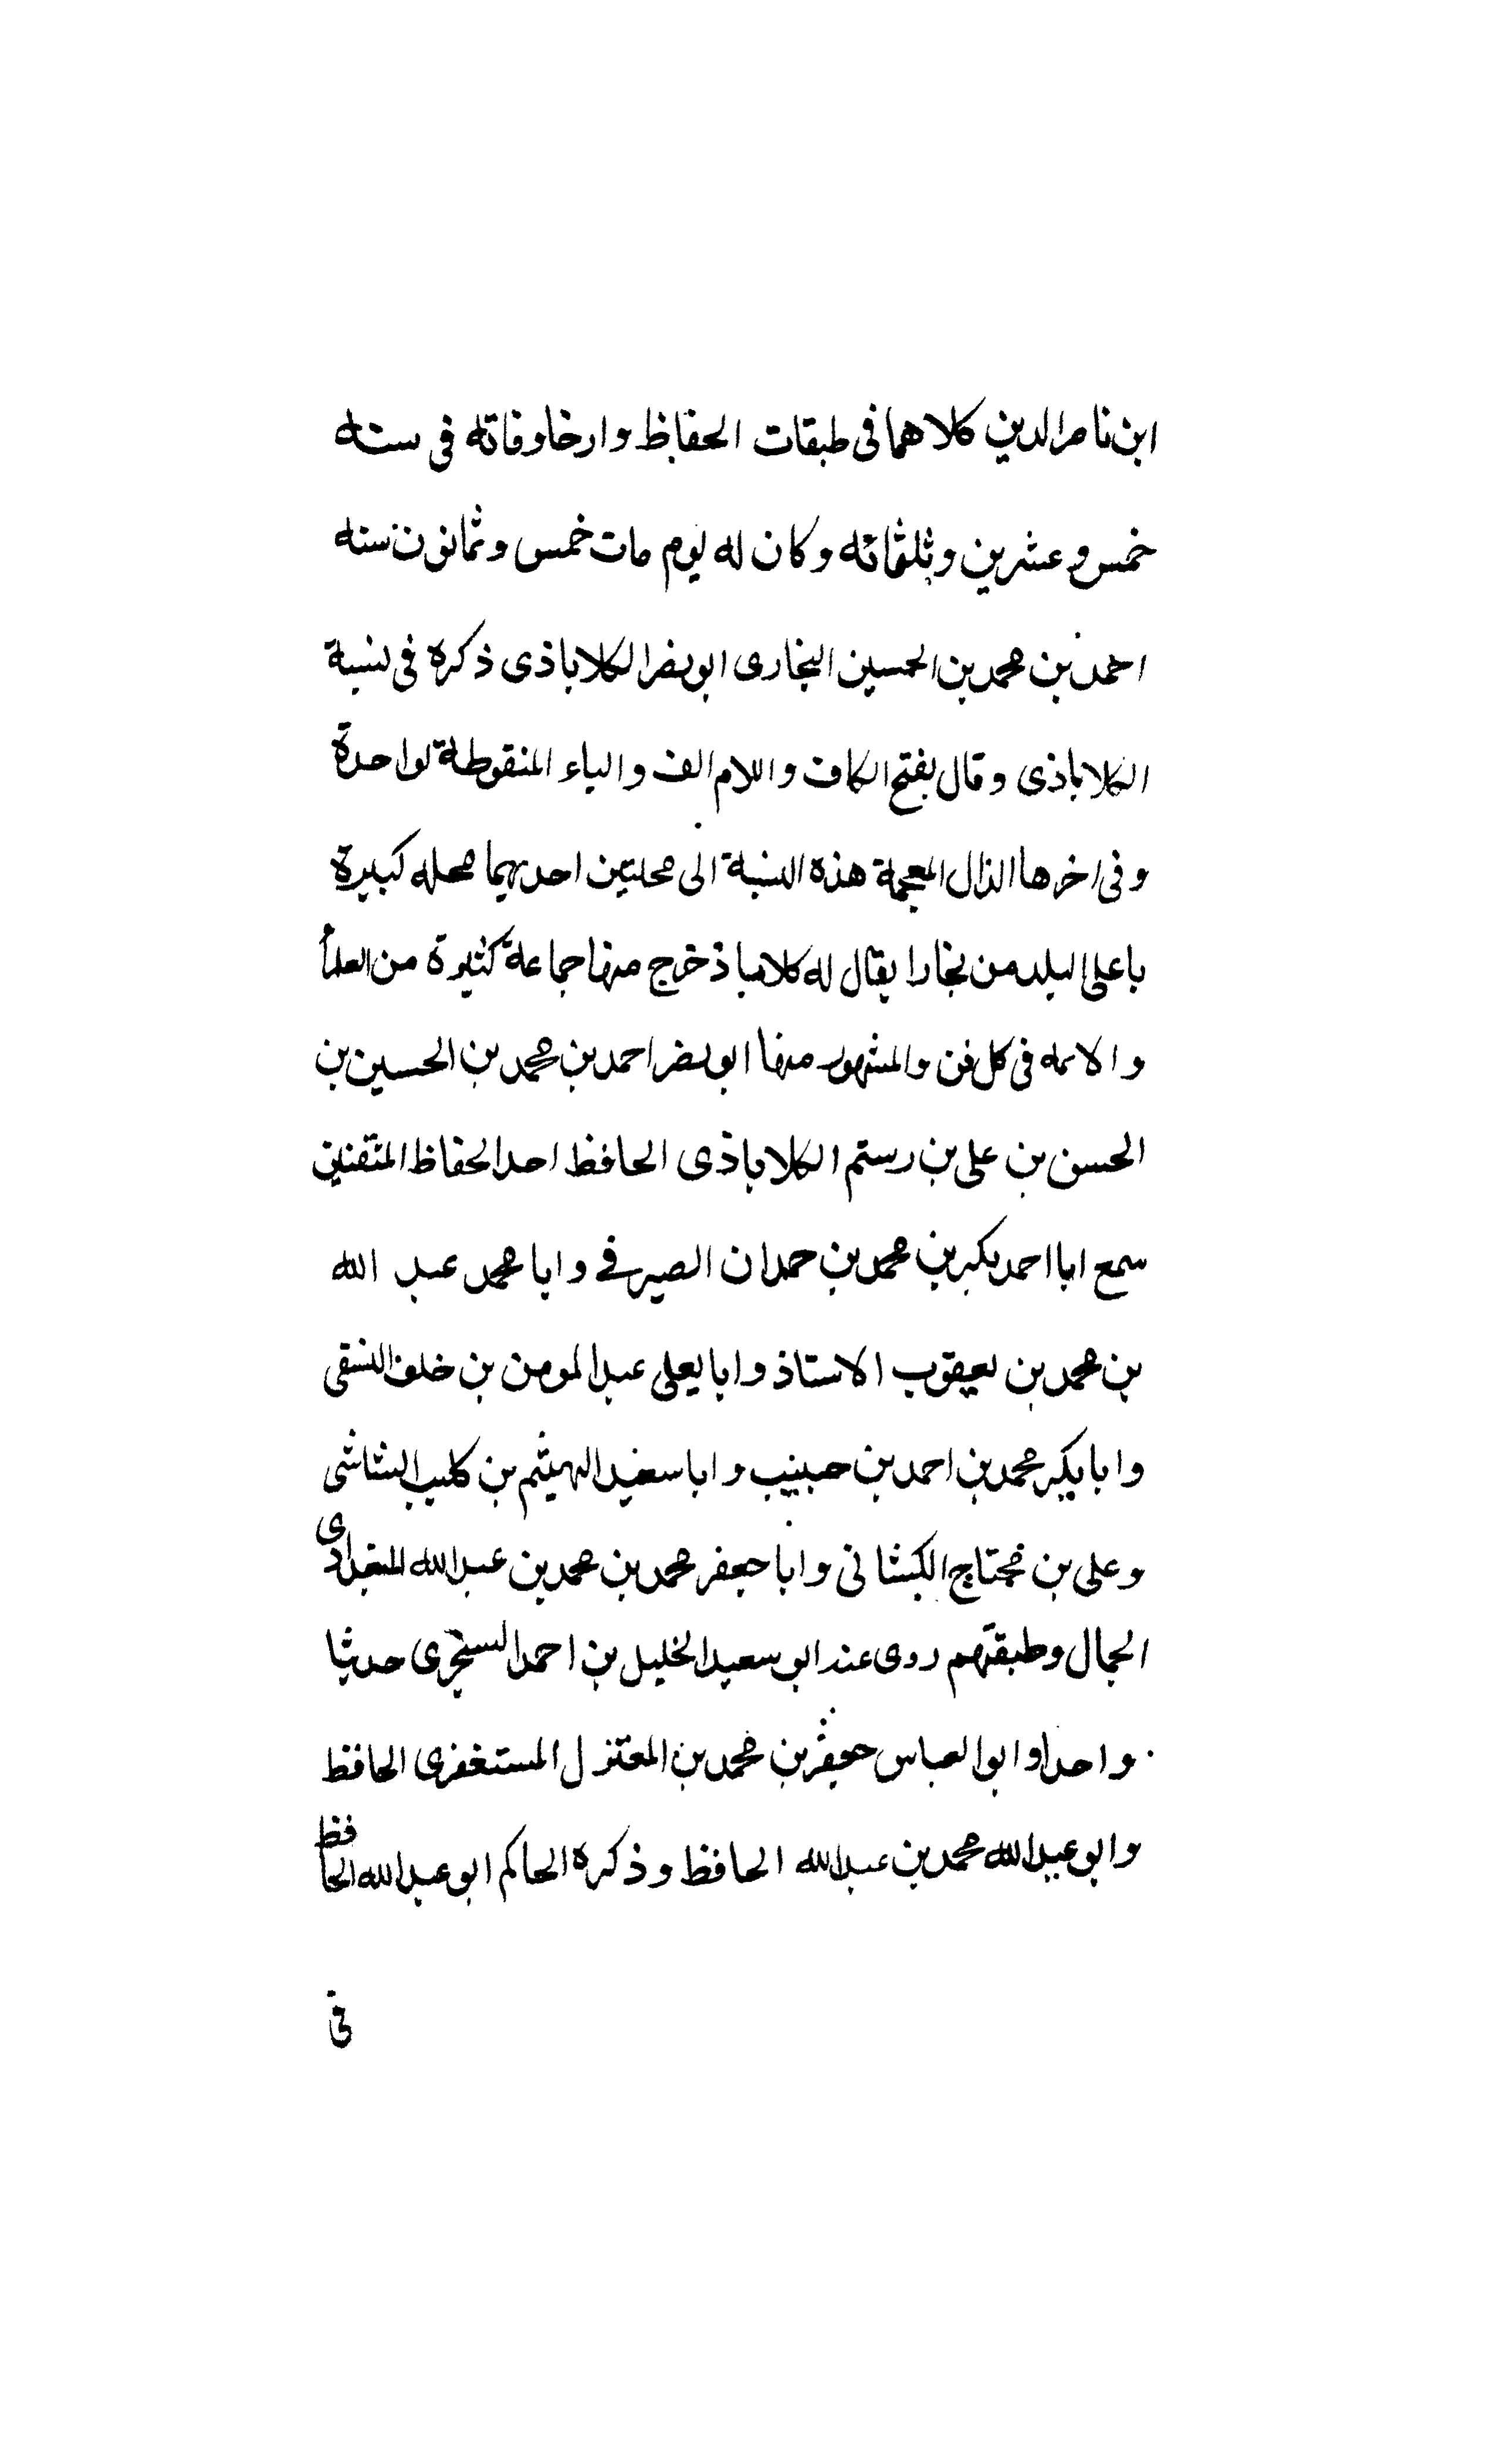 ابن ناصر الدين كلاهما فى طبقات الحفاظ وارخا وفاته فى سنه
خمس وعشرين وثلثمائه وكان له يوم مات خمس وثمانون سنه
احمد بن محمد بن الحسين البخارى ابو نصر الكلاباذى ذكره فى نسبة
الكلاباذى وقال بفتح الكاف واللام الف والباء المنقوطة لواحدة
وفى اخرها الذال المعجمة هذه النسبة الى محلتين احديهما محله كبيرة
باعلى البلد من بخارا يقال له كلاباذ خرج منها جماعة كثيرة من العلمأ
والائمه فى كل فن والمشهور منها ابو نصر احمد بن محمد بن الحسين بن
الحسن بن على بن رستم الكلاباذى الحافظ احد الحفاظ المتقنين
سمع ابا احمد بكر بن محمد بن حمدان الصيرفے وابا محمد عبد الله
بن محمد بن يعقوب الاستاذ وابا يعلى عبد المومن بن خلف النسقى
وابا بكر محمد بن احمد بن حبيب وابا سعيد الهيثم بن كليب الشاشى
وعلى بن محتاج الكشانى وابا جعفر محمد بن محمد بن عبد الله البغدادى
الجمال وطبقتهم روى عند ابو سعيد الخليل بن احمد السنجرى حديثا
واحدا وابو العباس جعفر بن محمد بن المعتزل المستغفرى الحافظ
وابو عبد الله محمد بن عبد الله الحافظ وذكره الحاكم ابو عبد الله الحافظ
فى